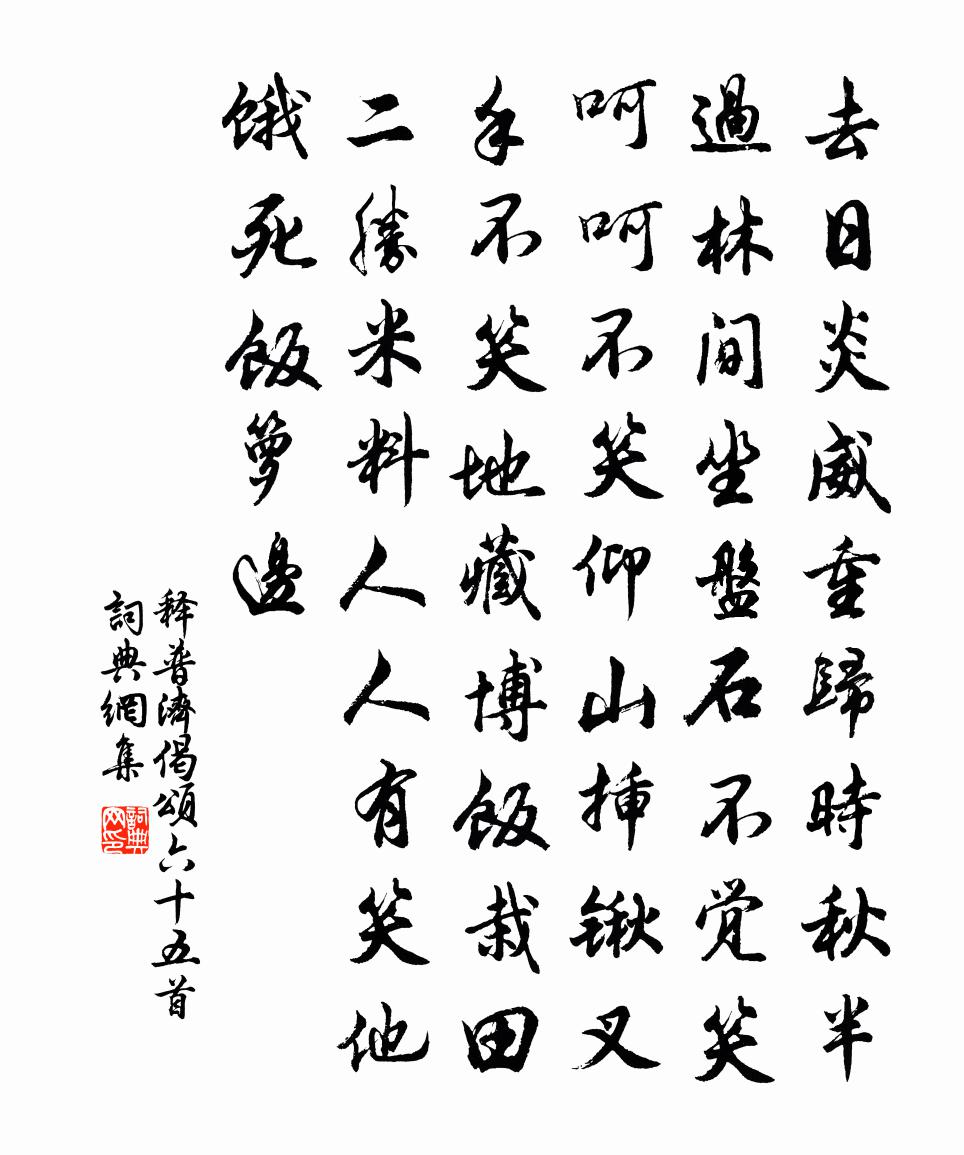 去日炎威重歸時秋半
過林間坐盤石不觉笑
呵呵不笑仰山揷锹叉
手不笑地藏博飯栽田
二勝米料人人有笑他
餓死飯箩邊
释普濟偈頌六十五首
詞典網集
詞典网印